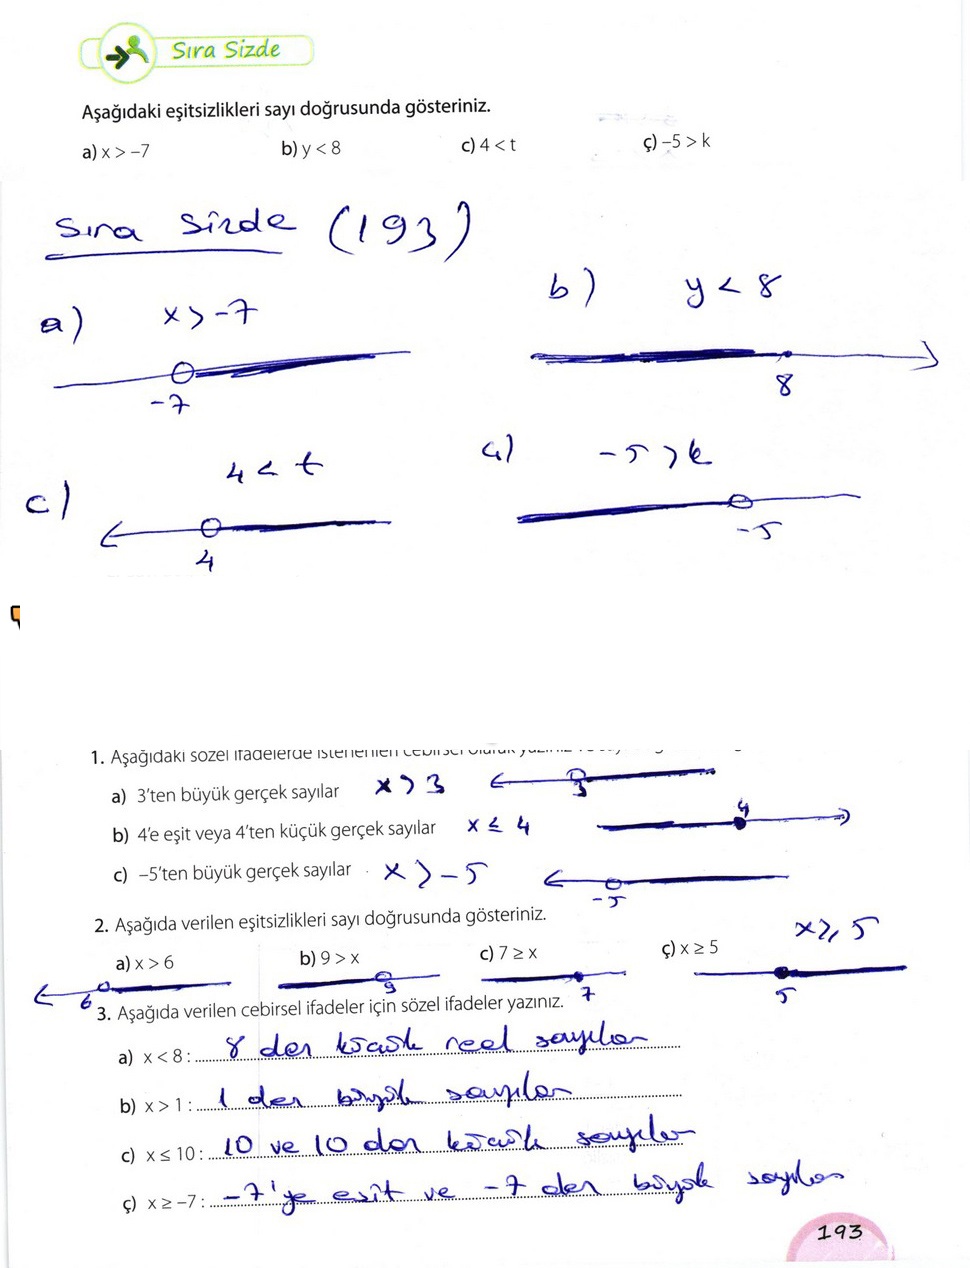 Sıra Sizde
Aşağıdaki eşitsizlikleri sayı doğrusunda gösteriniz.
a) x > –7 b) y < 8 c) 4 < t ç) –5 > k
Sıra Sizde (193)
a) x > -7
-7
b) y < 8
8
c) 4 < t
4
ç) -5 > k
-5
1. Aşağıdaki sözel ifadelerde istenenleri cebirsel olarak
a) 3'ten büyük gerçek sayılar x > 3
3
b) 4'e eşit veya 4'ten küçük gerçek sayılar x ≤ 4
4
c) –5'ten büyük gerçek sayılar x > -5
-5
2. Aşağıda verilen eşitsizlikleri sayı doğrusunda gösteriniz.
a) x > 6 b) 9 > x c) 7 ≥ x ç) x ≥ 5 x ≥ 5
6 9 7 5
3. Aşağıda verilen cebirsel ifadeler için sözel ifadeler yazınız.
a) x < 8 : 8 den küçük reel sayılar
b) x > 1 : 1 den büyük sayılar
c) x ≤ 10 : 10 ve 10 dan küçük sayılar
ç) x ≥ –7 : -7'ye eşit ve -7 den büyük sayılar
193